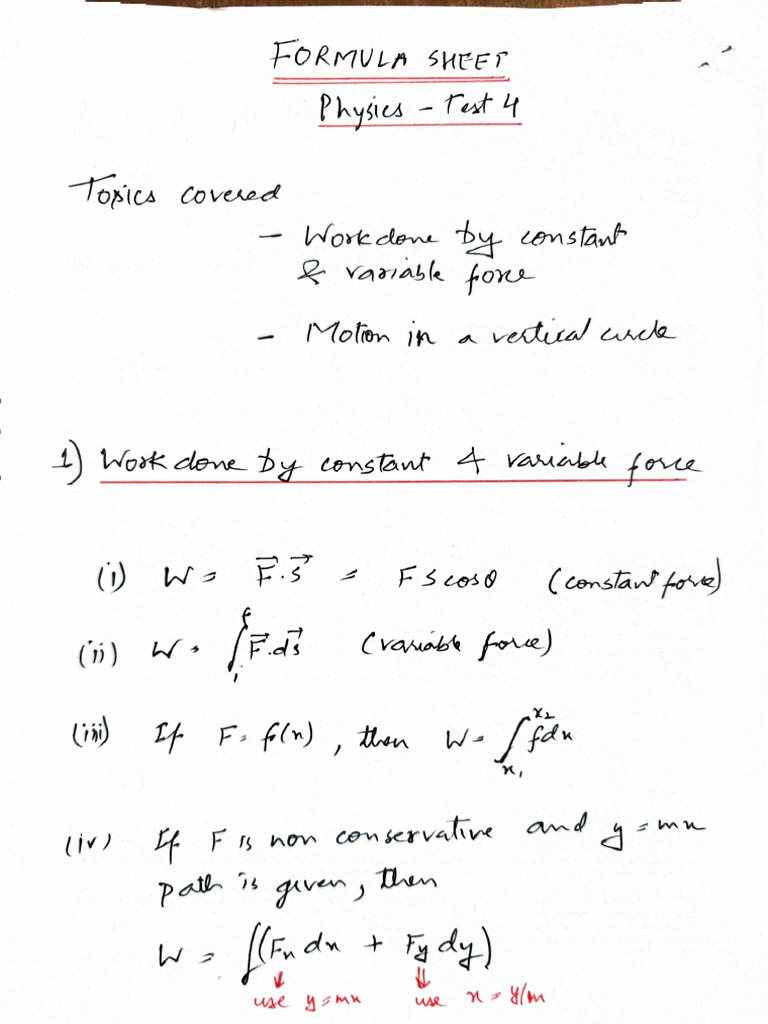 FORMULA SHEET
Physics - Test 4
Topics covered
- Workdone by constant
& variable force
- Motion in a vertical circle
1) Work done by constant & variable force
(i) W = F⃗.s⃗ = F S cosθ (constant force)
(ii) W = ∫ᵢᶠ F⃗.ds⃗ (variable force)
(iii) If F = f(x), then W = ∫ₓ₁ˣ² f dx
(iv) If F is non conservative and y = mx
path is given, then
W = ∫(Fₓ dx + Fy dy)
use y = mx use x = y/m